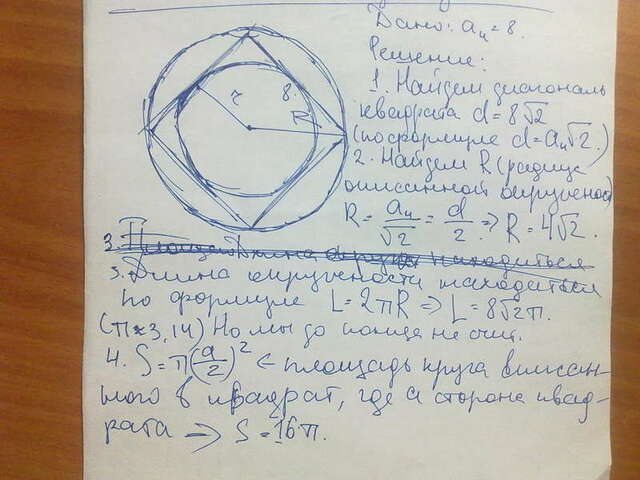 Дано: a₄ = 8.
Решение:
1. Найдем диагональ
квадрата d = 8√2
(по формуле d = a₄√2.)
2. Найдем R (радиус
описанной окружности)
R = a₄/√2 = d/2 ⇒ R = 4√2.
r 8. R
3. Длина окружности находиться
по формуле L = 2πR ⇒ L = 8√2π.
(π ≈ 3,14) Но мы до конца не счит.
4. S = π(a/2)² ← площадь круга вписан-
ного в квадрат, где a сторона квад-
рата ⇒ S = 16π.